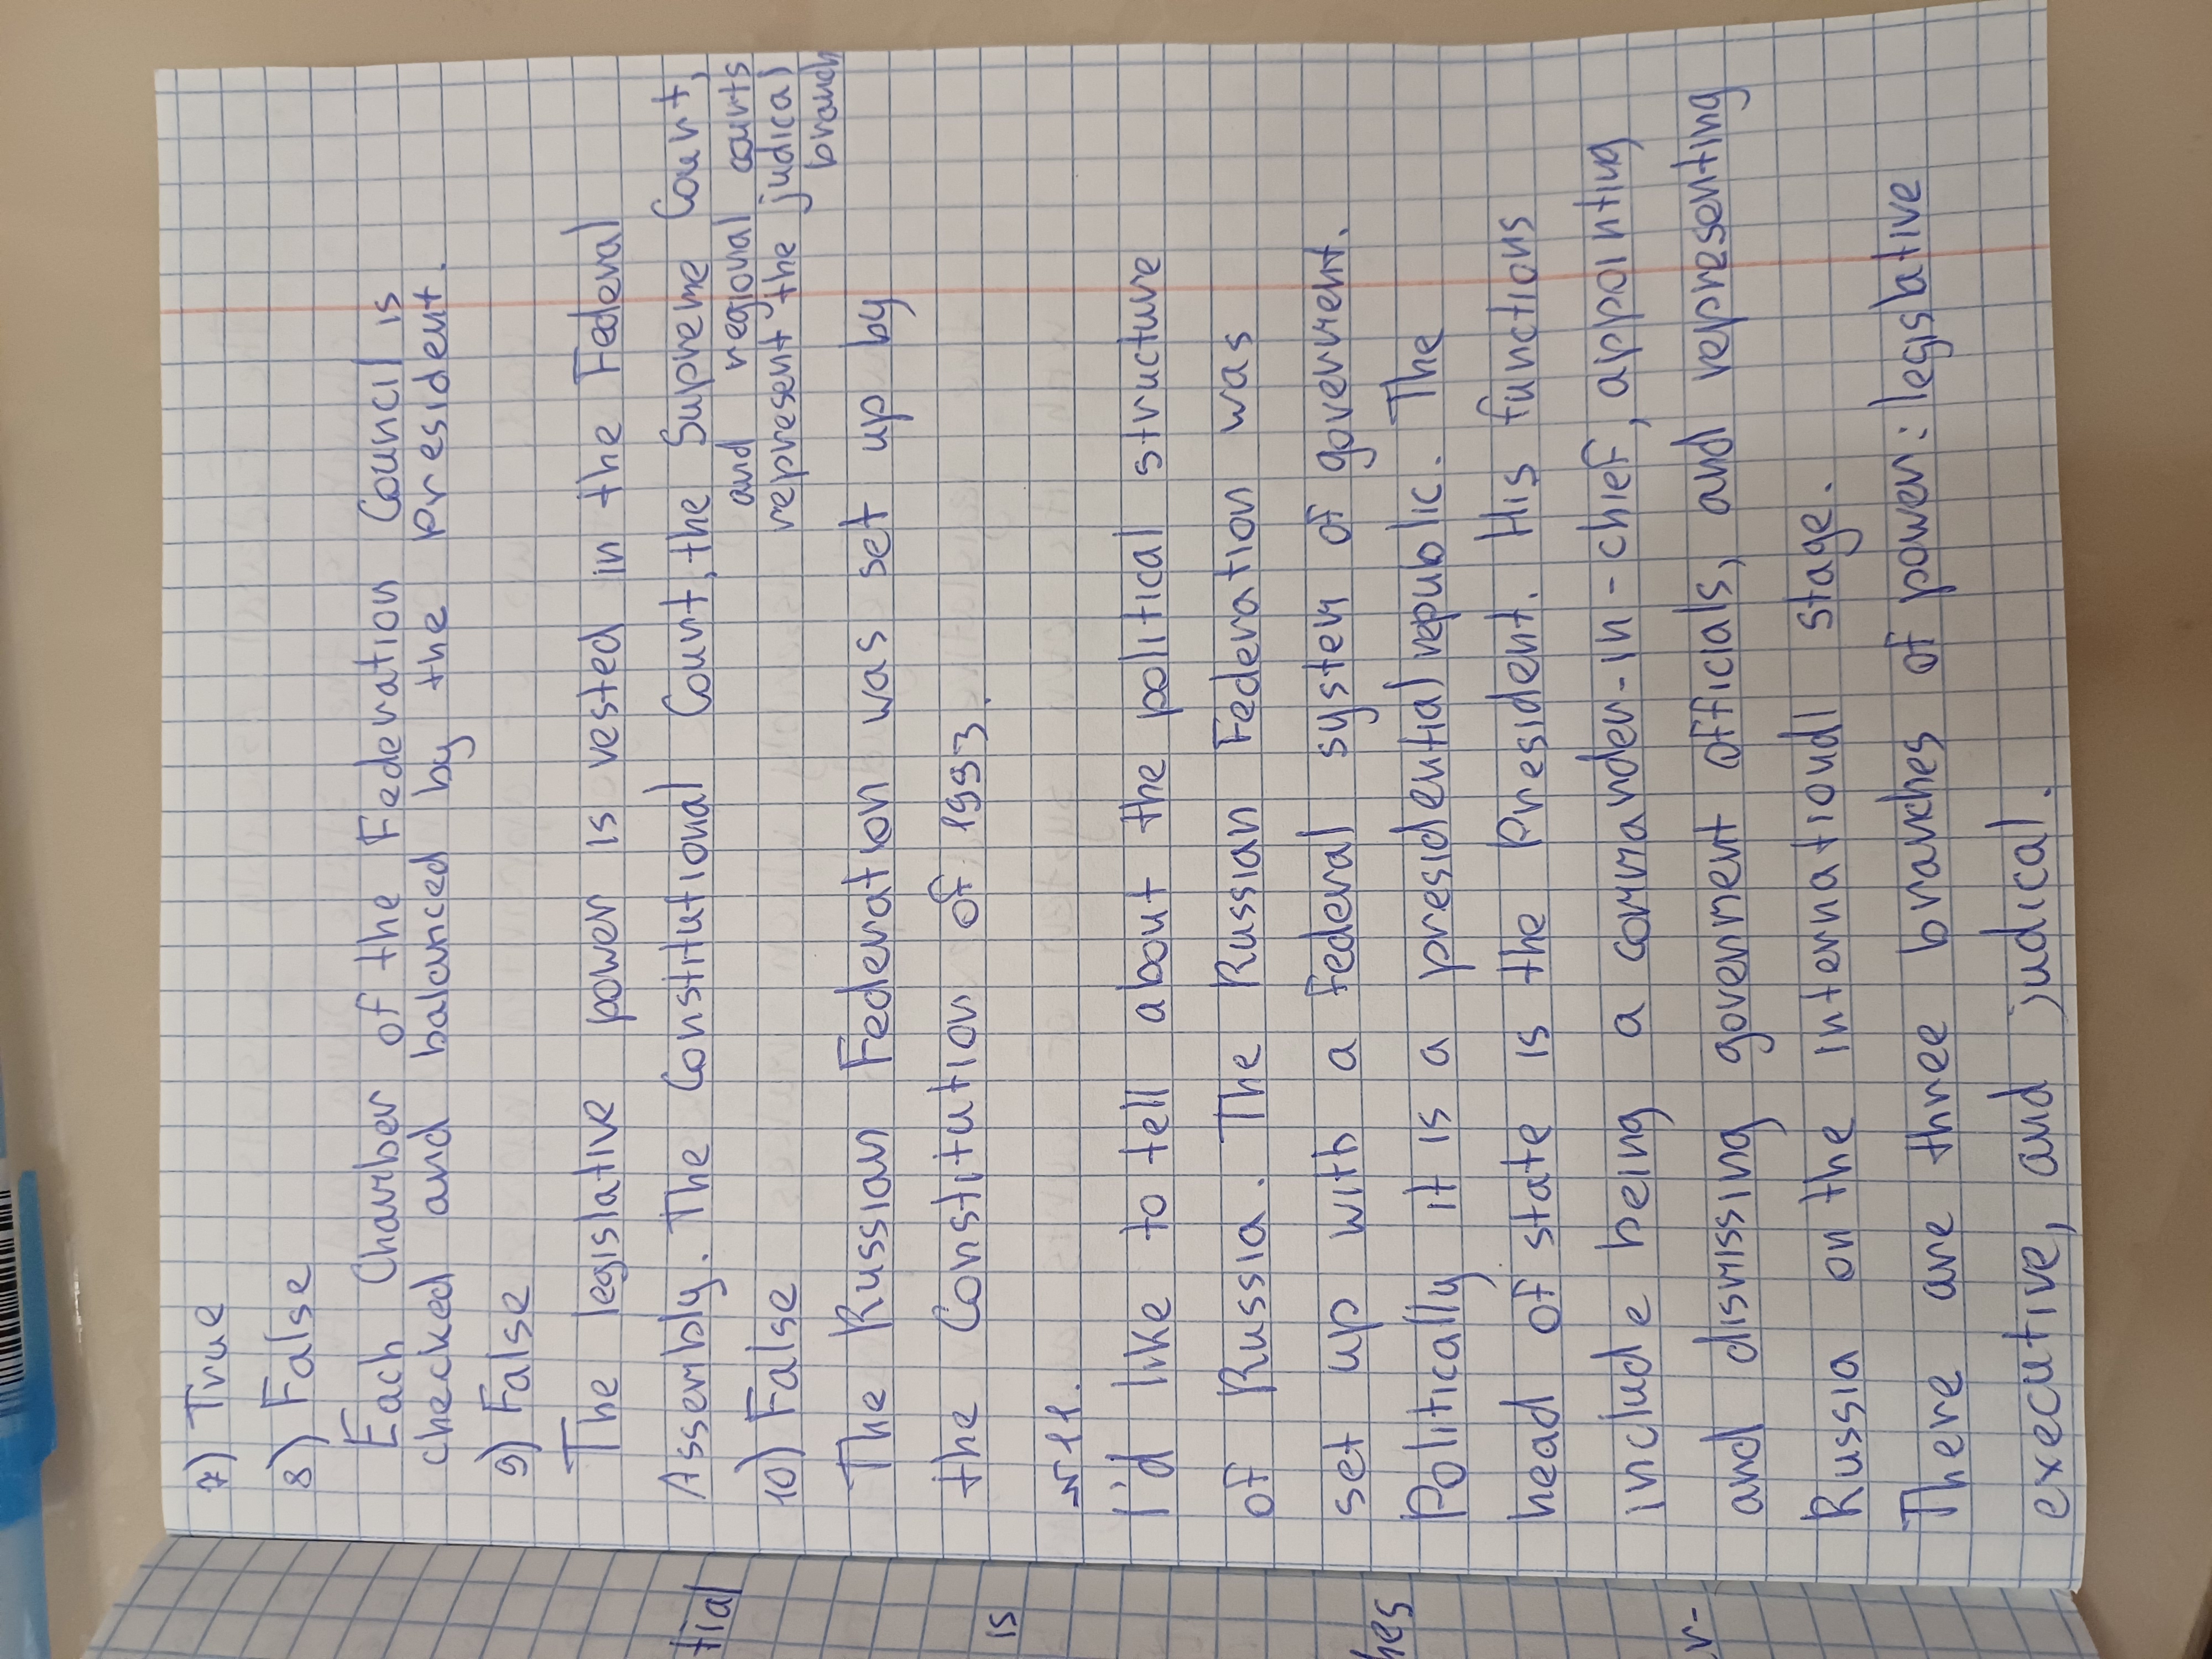 7) True
8) False
Each Chamber of the Federation Council is
checked and balanced by the president.
9) False
The legislative power is vested in the Federal
Assembly. The Constitutional Court, the Supreme Court,
and regional courts
represent the judical
branch
10) False
The Russian Federation was set up by
the Constitution of 1993.
№11.
I'd like to tell about the political structure
of Russia. The Russian Federation was
set up with a federal system of government.
Politically it is a presidential republic. The
head of state is the President. His functions
include being a commander-in-chief, appointing
and dismissing government officials, and representing
Russia on the international stage.
There are three branches of power: legislative
executive, and judical.
tial
is
hes
r-